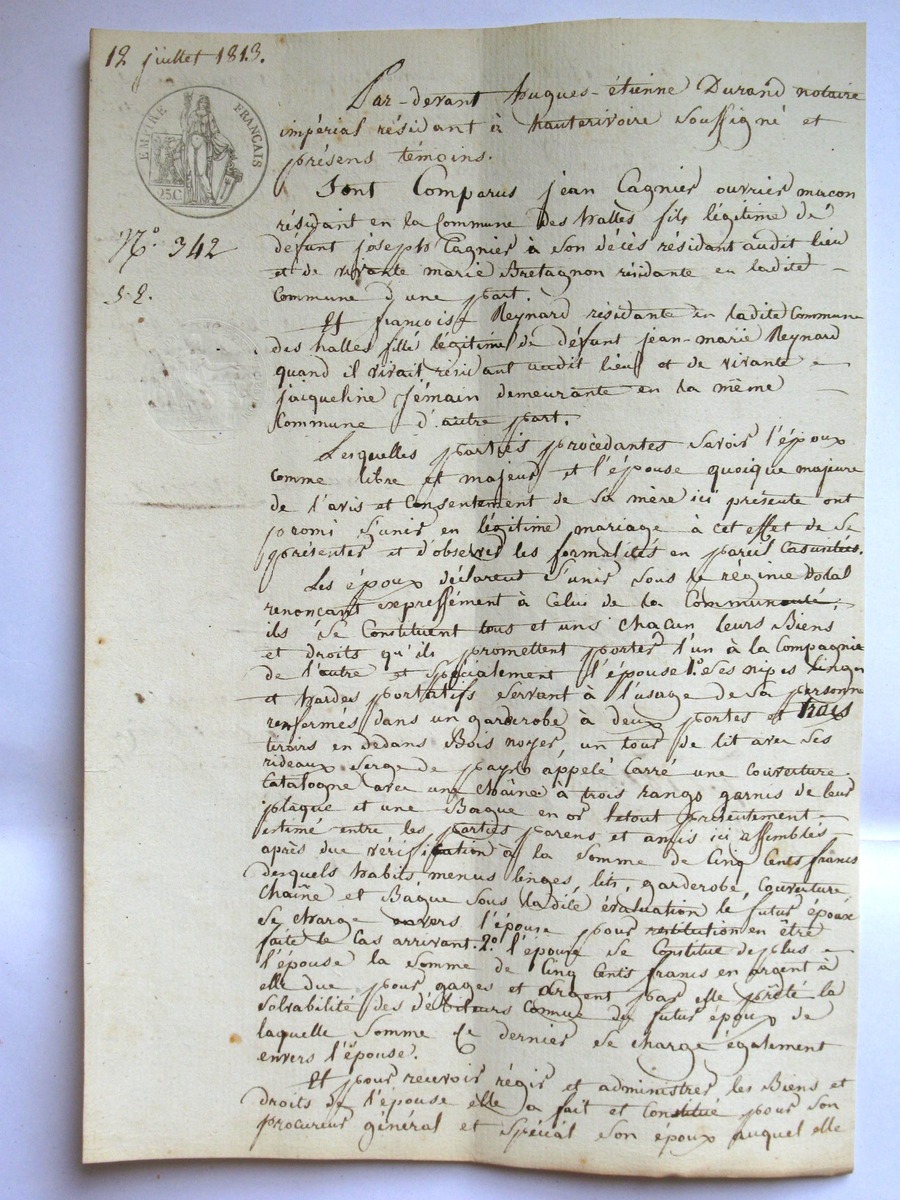 12 juillet 1813.
EMPIRE FRANÇAIS
25C
N.° 342
Par-devant hugues-étienne Durand notaire
impérial résidant à hauterivoire soussigné et
présens témoins.
Sont Comparus jean Cagnier ouvrier macon
résidant en la Commune des halles fils légitime de
défunt joseph Cagnier à son décès résidant audit lieu
et de vivante marie Bretagnon résidante en ladite
Commune d'une part.
Et françoise Reynard résidante en ladite Commune
des halles fille légitime de défunt jean-marie Reynard
quand il vivait résidant audit lieu et de vivante
jacqueline demeurante en la même
Commune d'autre part.
Lesquelles parties procèdantes savoir l'époux
comme libre et majeur et l'épouse quoique majeure
de l'avis et Consentement de sa mère ici présente ont
promi s'unir en légitime mariage à cet effet de se
présenter et d'observer les formalités en pareil Cas usitées.
Les époux déclarent s'unir sous le régime Dotal
renonçant expressément à Celui de la Communauté,
ils se Constituent tous et uns chacun leurs Biens
et droits qu'ils promettent porter l'un à la Compagnie
de l'autre et spécialement l'épouse 1.° Ses nipes linges
et hardes portatifs servant à l'usage de sa personne
renfermés dans un garderobe à deux portes et trois
tiroirs en dedans Bois noyer, un tour de lit avec ses
rideaux serge de pays appelé Carré une couverture
Catalogne avec une chaîne à trois rangs garnis de leur
plaque et une Bague en or le tout présentement
estimé entre les parties parens et amis ici assemblés
après due vérification à la somme de Cinq Cents francs
desquels habits menus linges, lits, garderobe, Couverture
Chaîne et Bague sous ladite évaluation le futur époux
se charge envers l'épouse pour restitution en être
faite le Cas arrivant. 2.° l'épouse se Constitue de plus
l'épouse la somme de Cinq Cents francs en argent à
elle due pour gages et argent par elle prêté la
solvabilité des débiteurs Connue du futur époux de
laquelle somme Ce dernier se charge également
envers l'épouse.
Et pour recevoir régir et administrer les Biens et
droits de l'épouse elle a fait et Constitué pour son
procureur général et spécial son époux auquel elle